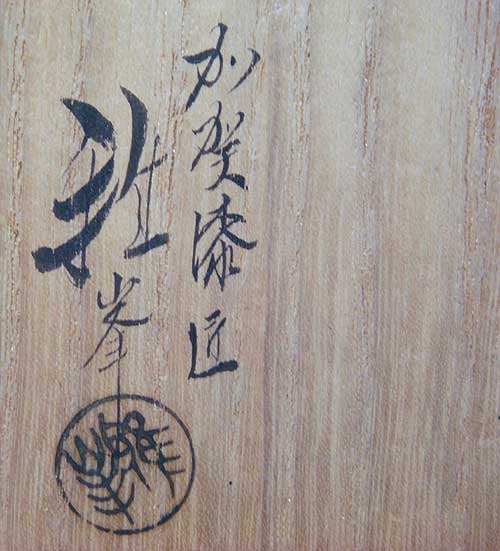 加賀漆匠
壮峯